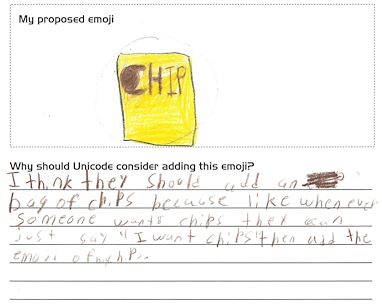 My proposed emoji
CHIP
Why should Unicode consider adding this emoji?
I think they should add an
bag of chips because like whenever
someone wants chips they can
just say "I want chips" then add the
emoji of